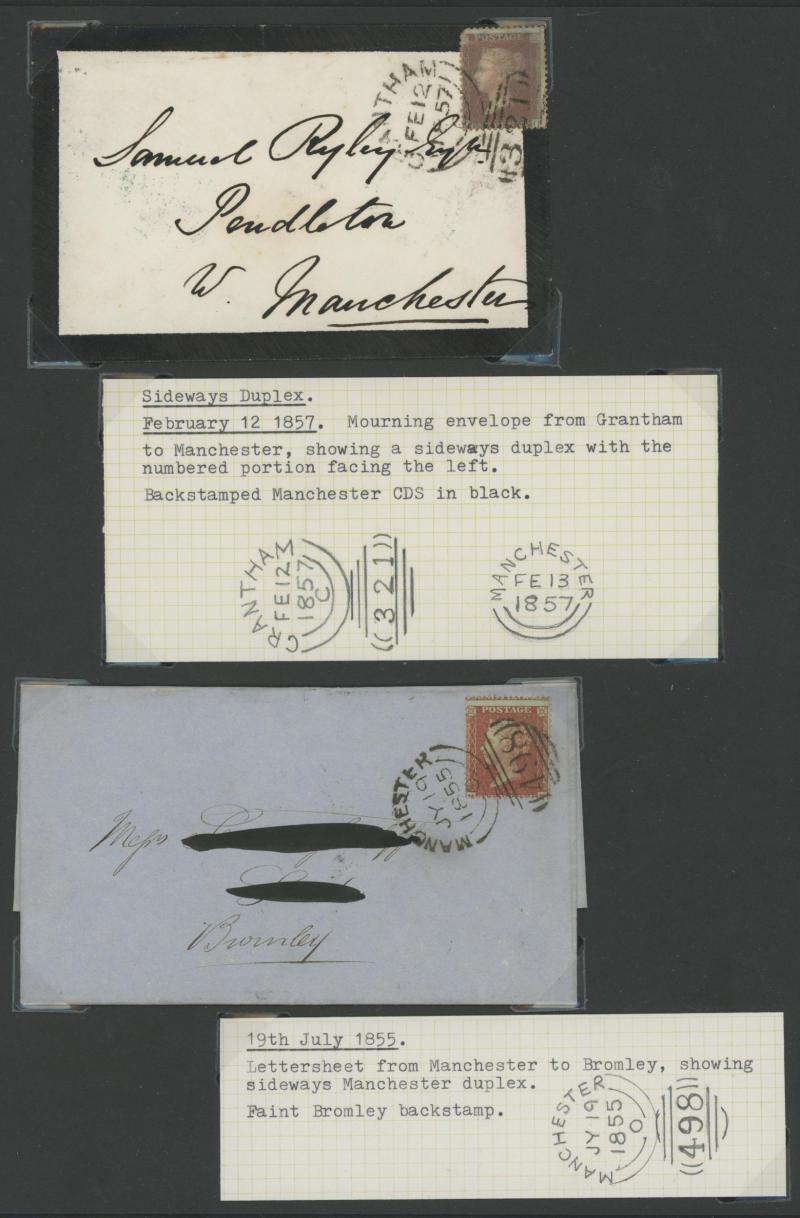 POSTAGE
GRANTHAM
FE 12
1857
321
Samuel Ryley Esqre
Pendleton
W. Manchester
Sideways Duplex.
February 12 1857. Mourning envelope from Grantham
to Manchester, showing a sideways duplex with the
numbered portion facing the left.
Backstamped Manchester CDS in black.
GRANTHAM
FE 12
1857
C
321
MANCHESTER
FE 13
1857
POSTAGE
MANCHESTER
JY 19
1855
498
Messrs
Bromley
19th July 1855.
Lettersheet from Manchester to Bromley, showing
sideways Manchester duplex.
Faint Bromley backstamp.
MANCHESTER
JY 19
1855
O
498